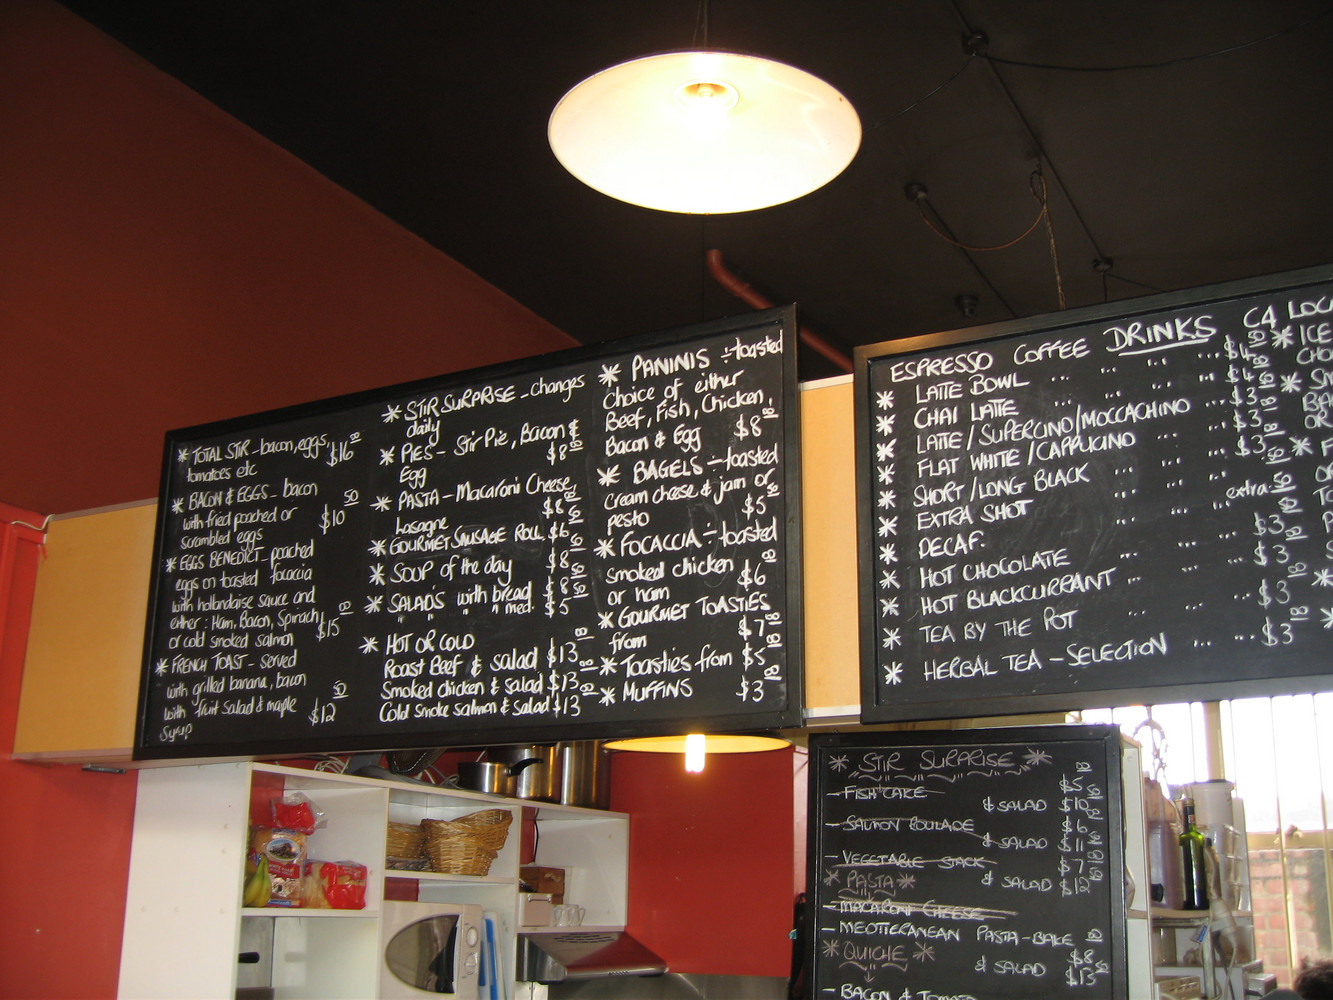 * TOTAL STIR - bacon, eggs, $16
tomatoes etc
* BACON & EGGS - bacon
with fried poached or $10 50
scrambled eggs
* EGGS BENEDICT - poached
eggs on toasted focaccia
with hollandaise sauce and
either: Ham, Bacon, Spinach
or cold smoked salmon $15
* FRENCH TOAST - served
with grilled banana, bacon
with fruit salad & maple $12 50
Syrup
* STIR SURPRISE - changes
daily
* PIES - Stir Pie, Bacon & $8
Egg
* PASTA - Macaroni Cheese,
Lasagne $8
* GOURMET SAUSAGE ROLL $6
* SOUP of the day $8
* SALADS with bread $8
" " med. $5
* HOT OR COLD
Roast Beef & salad $13
Smoked chicken & salad $13
Cold smoke salmon & salad $13
* PANINIS ÷ toasted
Choice of either
Beef, Fish, Chicken,
Bacon & Egg $8
* BAGELS ÷ toasted
cream cheese & jam or
pesto $5
* FOCACCIA ÷ toasted
smoked chicken
or ham $6
* GOURMET TOASTIES
from $7
* Toasties from $5
* MUFFINS $3
ESPRESSO COFFEE DRINKS C4
* LATTE BOWL ... .. ... $4
* CHAI LATTE ... .. ... $4
* LATTE / SUPERCINO / MOCCACHINO ... $3
* FLAT WHITE / CAPPUCINO ... ... $3
* SHORT / LONG BLACK ... ... $3
* EXTRA SHOT ... ... extra
* DECAF.
* HOT CHOCOLATE ... ... $3
* HOT BLACKCURRANT ... ... $3
* TEA BY THE POT ... ... $3
* HERBAL TEA - SELECTION ... ... $3
* ICE
* STIR SURPRISE *
- FISH CAKE $5
& SALAD $10
- SALMON ROULADE $6
& SALAD $11
- VEGETABLE STACK $7
& SALAD $12
* PASTA *
- MACARONI CHEESE
- MEDITERRANEAN PASTA-BAKE $8
& SALAD $13
* QUICHE *
- BACON & TOMATO